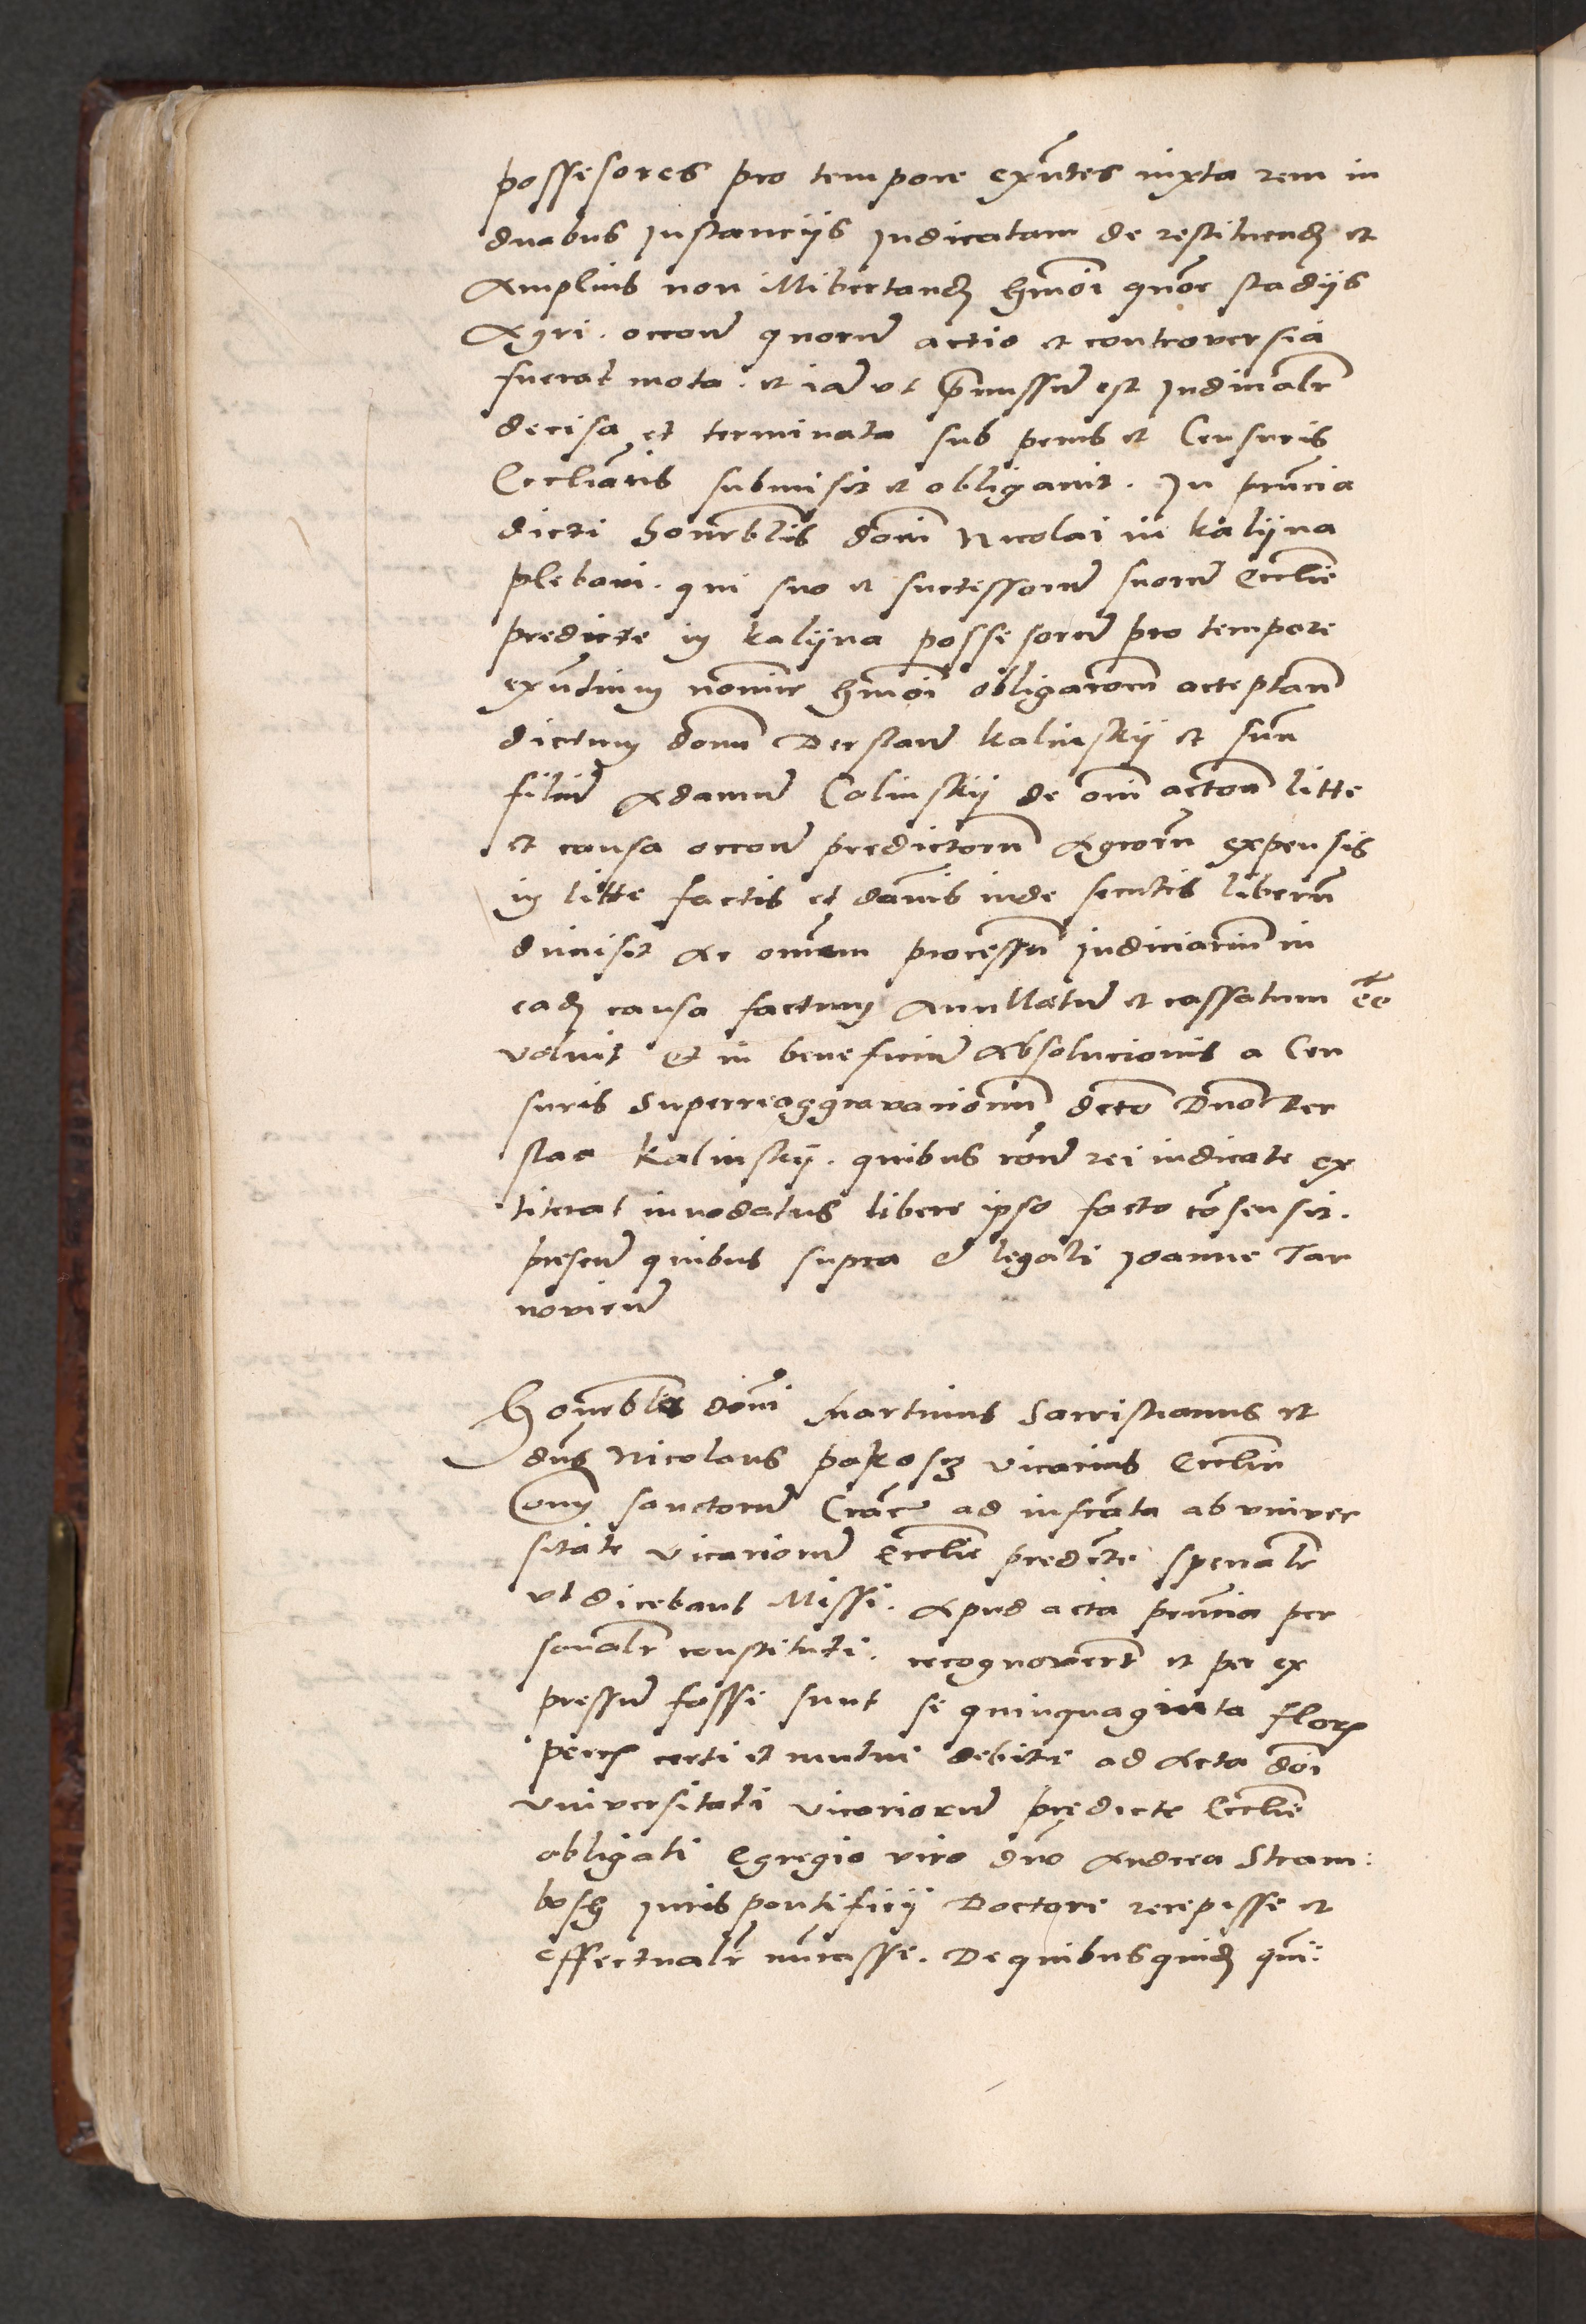 possessores pro tempore exn̄tes iuxta rem in
duabus Instanciis Iudicatam de restituend̄ et
Amplius non illibertand̄ hmōi qūor stadiis
Agri. occoē quorum̄ actio et controversia
fuerat mota. et iā ut p̄missum̄ est Iudicialr̄
decisa et terminata sub penis et Censuris
Eccliāticis submisit et obligavit. In pn̄cia
dicti honorblīs domī Nicolai in kalijna
plebani. qui suo et successorum̄ suorum̄ Ecclīe
predicte in kalijna possessorum̄ pro tempore
exn̄tium nomīe hmōi obligacōem acceptan̄
dictum domn̄ Derslaum̄ kalinskij et suū
filium̄ Adamum̄ Calinskij de om̄i actōe litte
et causa occoē predictorum̄ Agrorū expensis
in litte factis et dānis inde secutis liberū
dimisit Ac om̄em processū Iudiciariū in
ead̄ causa factum Anullatum̄ et cassatum ēē
voluit et in beneficium̄ Absolucionis a Cen
suris Superreaggravacionū dcto Dno Der
slao kalinskij. quibus rōne rei iudicate ex
titerat innodatus libere ipso facto cōsensit.
presen̄ quibus supra et legali Ioanne Tar
novicen̄
Honorbles domī Martinus Sacristianus et
dn̄s Nicolaus pakosz vicarius Ecclīe
Om̄ sanctorum̄ Crac̄ ad infrāta ab univer
sitate vicariorum̄ Ecclīe predcte specialr̄
ut dicebant Missi. Apud acta pn̄cia per
sonalr̄ constituti. recognoverūt et per ex
pressum̄ fassi sunt se quinquaginta flor
pecc̄ certi et mutui debiti ad Acta dōi
universitati vicariorum̄ predicte Ecclīe
obligati Egregio viro dn̄o Andrea Stram:
bosz Iuris pontificii Doctore recepisse et
effectualr̄ nūrasse. De quibus quid̄ qui: